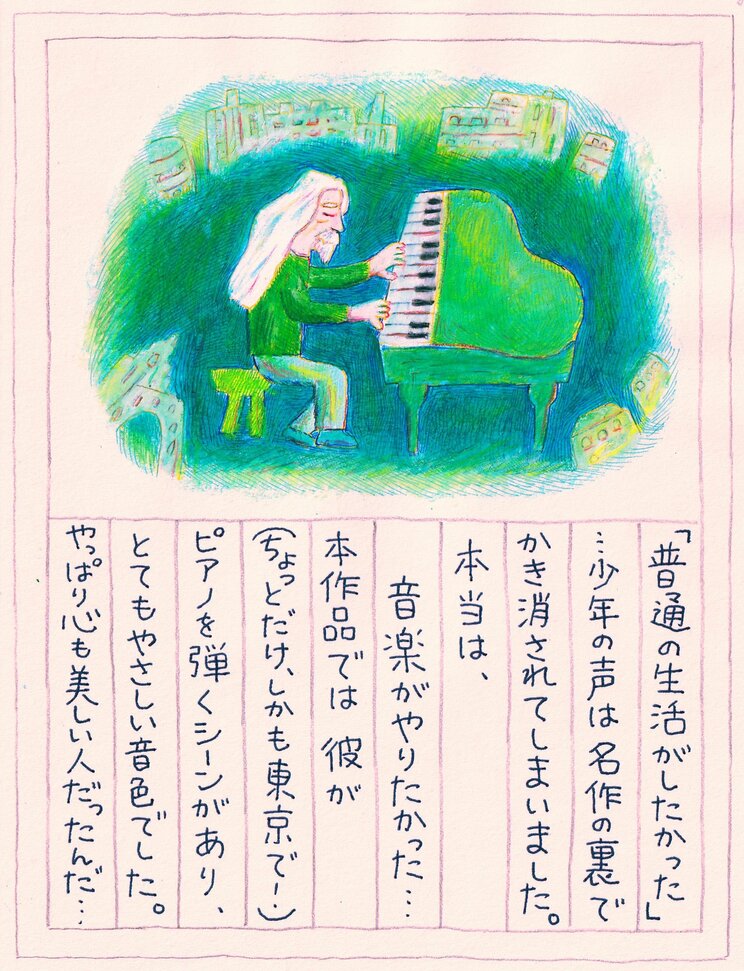 「普通の生活がしたかった」
…少年の声は名作の裏で
かき消されてしまいました。
本当は、
音楽がやりたかった…
本作品では 彼が
(ちょっとだけ、しかも東京で！)
ピアノを弾くシーンがあり、
とてもやさしい音色でした。
やっぱり心も美しい人だったんだ…